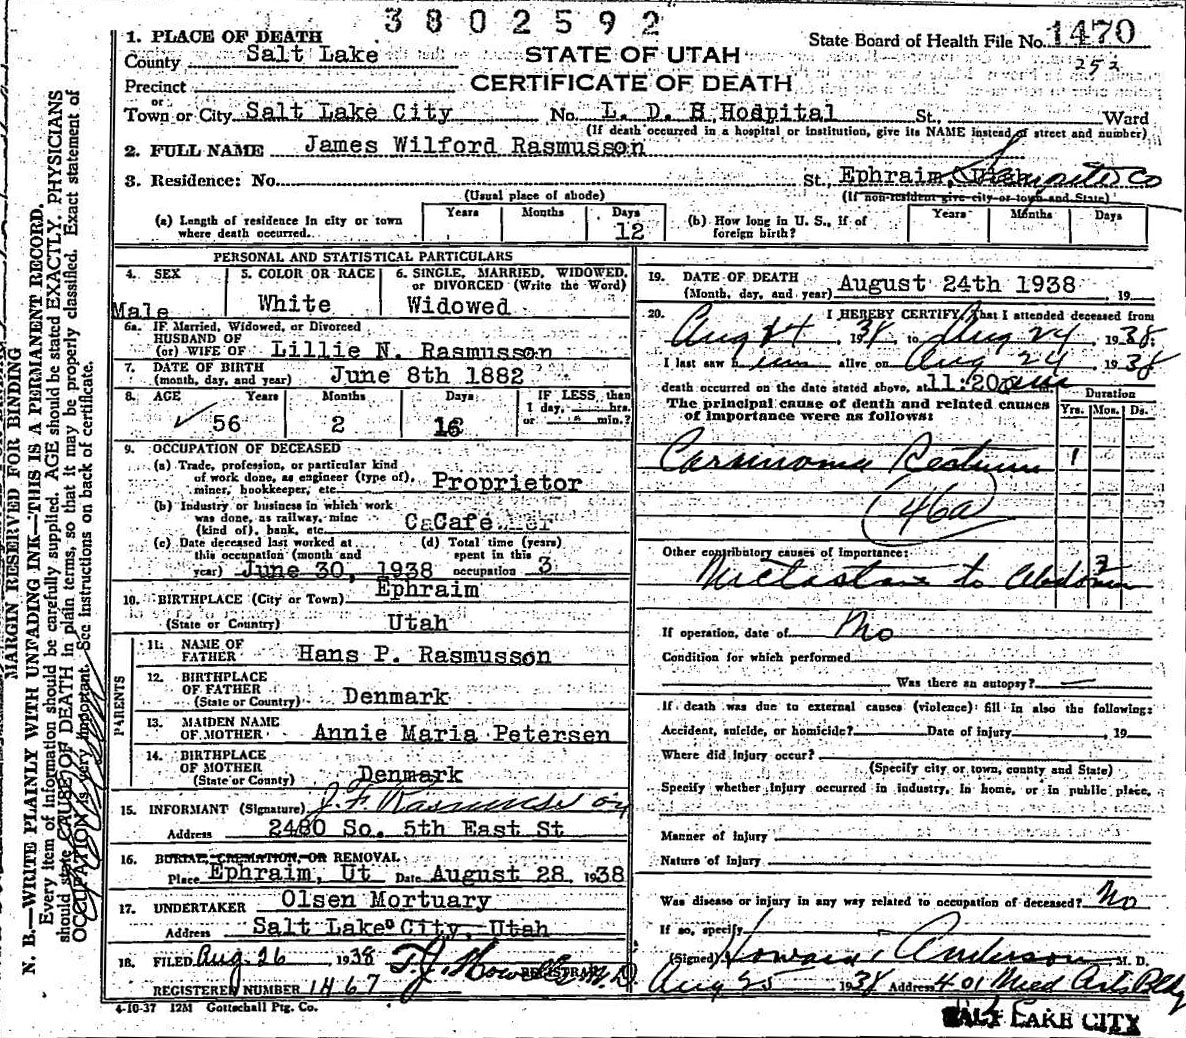 3802592
1. PLACE OF DEATH
County Salt Lake
Precinct
or
Town or City Salt Lake City No. L. D. S Hospital St., Ward
(If death occurred in a hospital or institution, give its NAME instead of street and number)
STATE OF UTAH
CERTIFICATE OF DEATH
State Board of Health File No. 1470
252
2. FULL NAME James Wilford Rasmusson
3. Residence: No. St., Ephraim, Utah Sanpete Co
(Usual place of abode) (If non-resident give city or town and State)
(a) Length of residence in city or town where death occurred. Years Months Days 12
(b) How long in U. S., if of foreign birth? Years Months Days
PERSONAL AND STATISTICAL PARTICULARS
4. SEX Male
5. COLOR OR RACE White
6. SINGLE, MARRIED, WIDOWED, or DIVORCED (Write the Word) Widowed
6a. IF Married, Widowed, or Divorced
HUSBAND OF
(or) WIFE OF Lillie N. Rasmusson
7. DATE OF BIRTH
(month, day, and year) June 8th 1882
8. AGE Years Months Days IF LESS than
1 day, hrs.
56 2 16 or min.?
9. OCCUPATION OF DECEASED
(a) Trade, profession, or particular kind
of work done, as engineer (type of),
miner, bookkeeper, etc. Proprietor
(b) Industry or business in which work
was done, as railway, mine
(kind of), bank, etc. Cafe
(c) Date deceased last worked at
this occupation (month and
year) June 30, 1938
(d) Total time (years)
spent in this
occupation 3
10. BIRTHPLACE (City or Town) Ephraim
(State or Country) Utah
PARENTS
11. NAME OF
FATHER Hans P. Rasmusson
12. BIRTHPLACE
OF FATHER
(State or Country) Denmark
13. MAIDEN NAME
OF MOTHER Annie Maria Petersen
14. BIRTHPLACE
OF MOTHER
(State or County) Denmark
15. INFORMANT (Signature) J. F. Rasmusson
Address 2480 So. 5th East St
16. BURIAL, CREMATION, OR REMOVAL
Place Ephraim, Ut Date August 28, 1938
17. UNDERTAKER Olsen Mortuary
Address Salt Lake City, Utah
18. FILED Aug. 26 1938 T. J. Howells M.D.
REGISTRAR
REGISTERED NUMBER 1467
4-10-37 12M Gottschall Ptg. Co.
19. DATE OF DEATH
(Month, day, and year) August 24th 1938, 19
20. I HEREBY CERTIFY, That I attended deceased from
Aug 24, 1938 to Aug 24, 1938;
I last saw him alive on Aug 24, 1938
death occurred on the date stated above, at 11:20
The principal cause of death and related causes
of importance were as follows:
Duration
Yrs. Mos. Ds.
Carsinoma Rectum 1
46a
Other contributory causes of importance:
Metastases to Abdomen 3
If operation, date of No
Condition for which performed
Was there an autopsy? —
If death was due to external causes (violence) fill in also the following:
Accident, suicide, or homicide? Date of injury , 19
Where did injury occur?
(Specify city or town, county and State)
Specify whether injury occurred in industry, in home, or in public place,
Manner of injury
Nature of injury
Was disease or injury in any way related to occupation of deceased? No
If so, specify
(Signed) Howard Anderson M. D.
Aug 25 1938 Address 401 Med Arts Bldg
SALT LAKE CITY
MARGIN RESERVED FOR BINDING
N. B.—WRITE PLAINLY WITH UNFADING INK—THIS IS A PERMANENT RECORD.
Every item of information should be carefully supplied. AGE should be stated EXACTLY. PHYSICIANS
should state CAUSE OF DEATH in plain terms, so that it may be properly classified. Exact statement of
OCCUPATION is very important. See instructions on back of certificate.